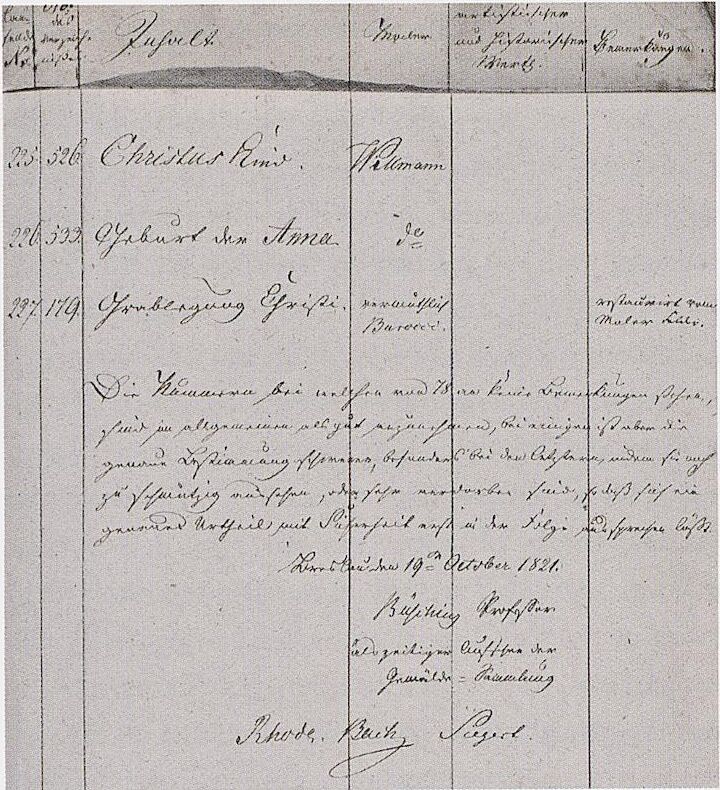 Lau-
fende
No.
des
Verzeich-
nißes.
Inhalt.
Maler
artistischer
und historischer
Werth.
Bemerkungen.
225. 526. Christus Kind. Willmann
226. 533. Geburt der Anna do
227. 179. Grablegung Christi. vermuthlich
Barocci.
restaurirt vom
Maler
Die Nummern bei welchen von 78 an keine Bemerkungen stehen,
sind im allgemeinen als gut anzunehmen, bei einigen ist aber die
genaue Bestimmung schwerer, besonders bei den letztern, indem sie noch
zu schmutzig aussehen, oder sehr verdorben sind, so daß sich ein
genaues Urtheil mit Sicherheit erst in der Folge aussprechen läßt.
Breslau den 19ten October 1821.
Büsching Professor
als zeitiger Aufseher der
Gemälde-Sammlung
Rhode. Bach Siegert.